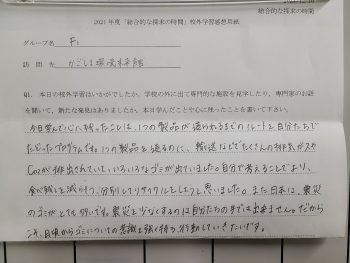 総合的な探求の時間
2021年度「総合的な探求の時間」校外学習感想用紙
グループ名 F1
訪問先 かごしま環境未来館
Ⅲ. 本日の校外学習はいかがでしたか。学校の外に出て専門的な施設を見学したり、専門家のお話
を聞いて、新たな発見はありましたか。本日学んだことや心に残ったことを書いて下さい。
今日学んで心に残ったことは、1つの製品が造られるまでのルートを自分たちで
たどったプログラムです。1つの製品を造るのに、輸送などでたくさんの排気ガスや
CO2が排出されていて、いろいろなゴミが出ていました。自分で考えることでより、
食べ残しを減らそう、分別してリサイクルをしようと思いました。また日本は、震災
のゴミがとても多いです。震災を少なくするのは自分たちの手では出来ません。だから
こそ、日頃からゴミについての意識を強く持ち、行動していきたいです。